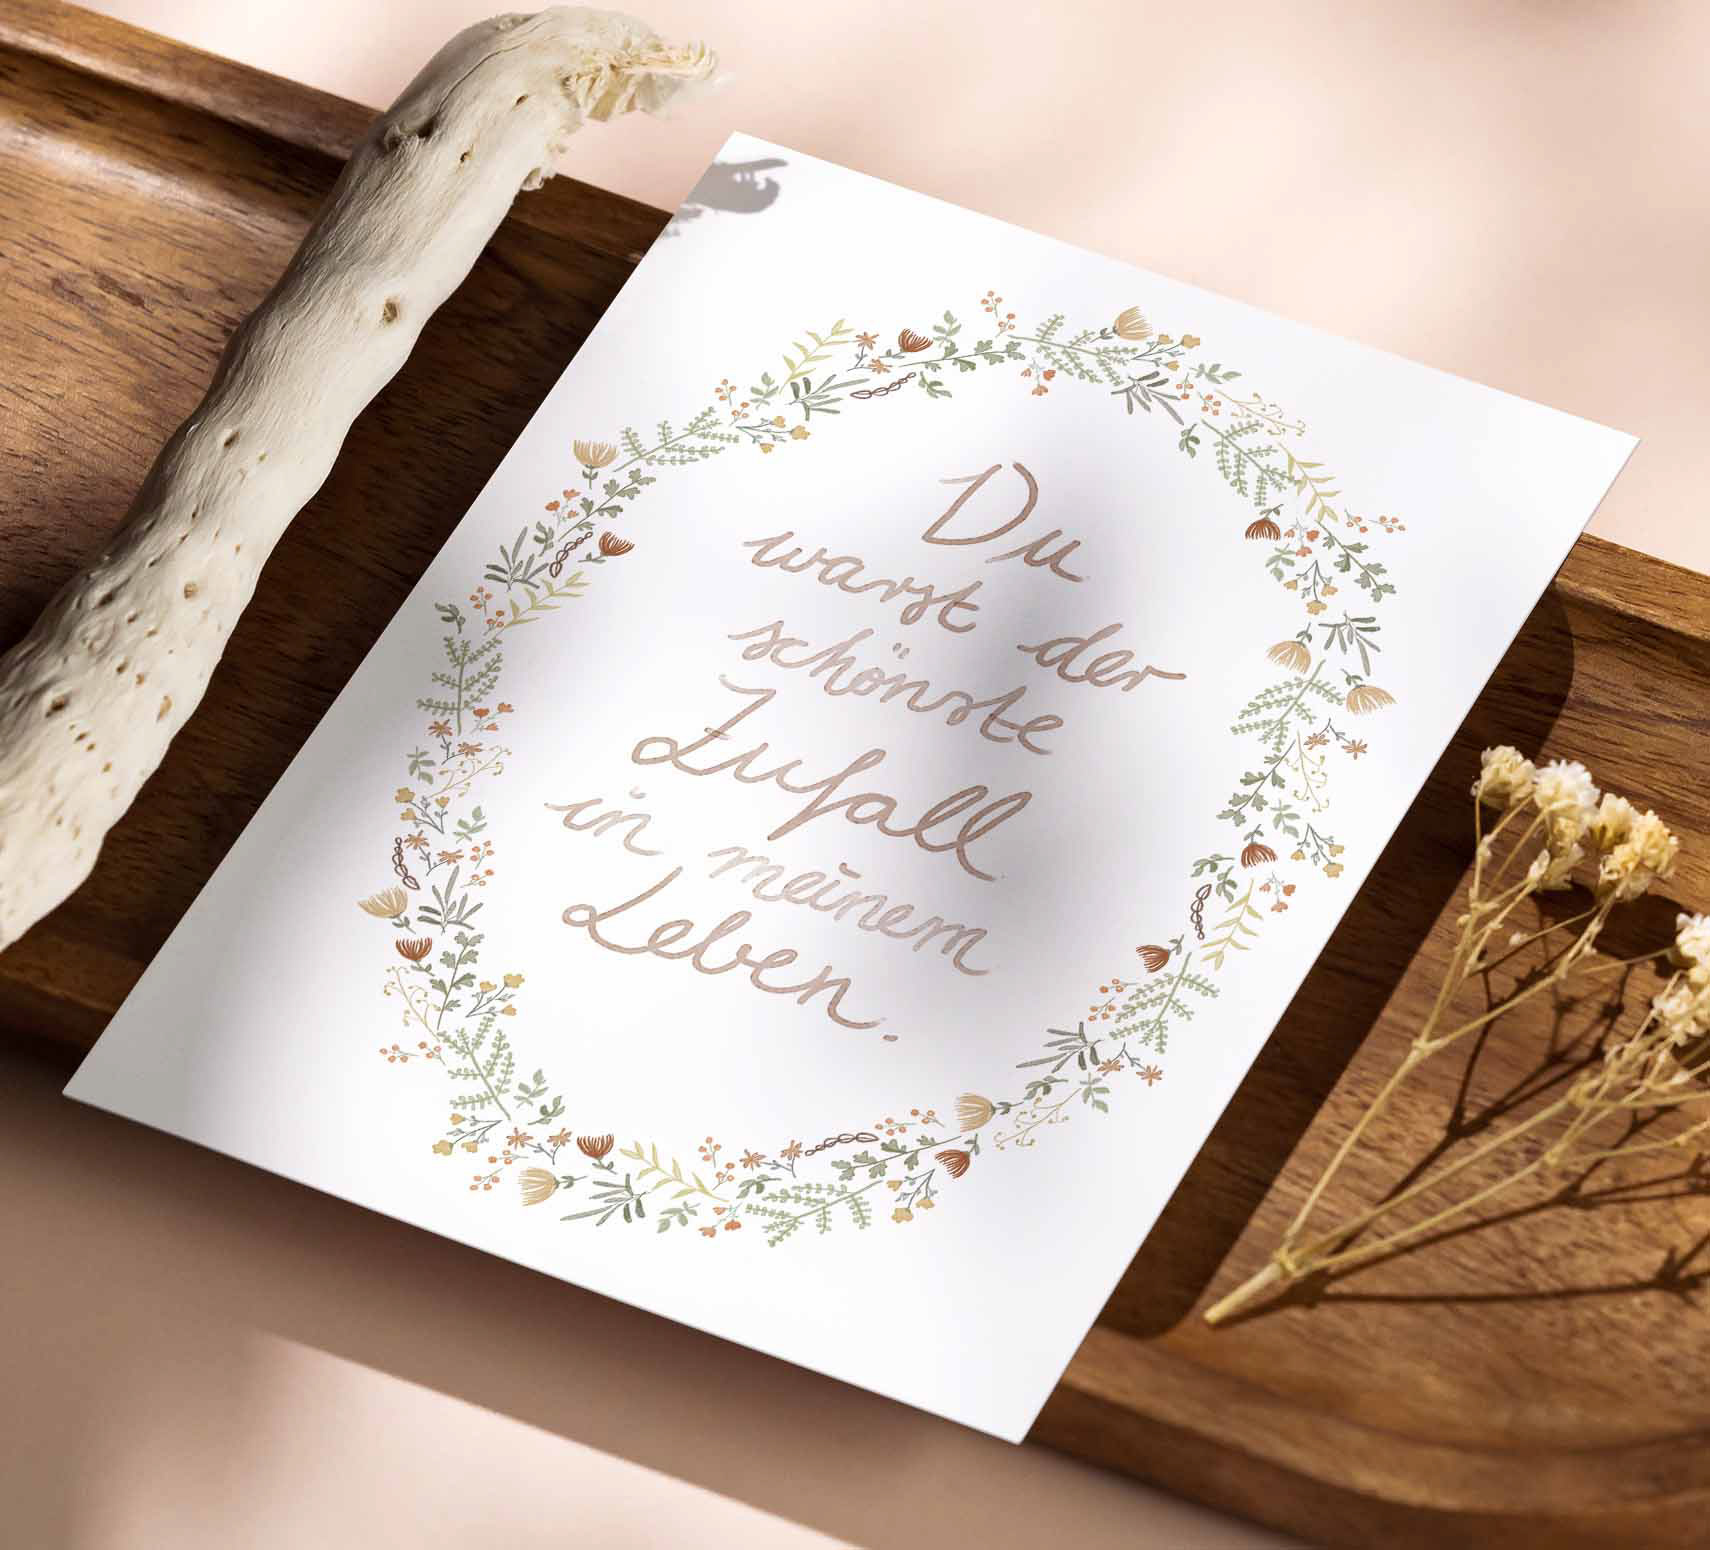 Du
warst der
schönste
Zufall
in meinem
Leben.